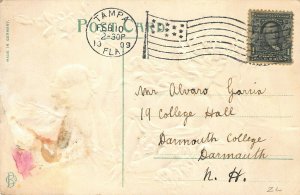 POST CARD
TAMPA
FEB 10
2-30P
1909
FLA.
MADE IN GERMANY
Mr Alvaro Garcia
19 College Hall
Darmouth College
Darmouth
N. H.
ZL